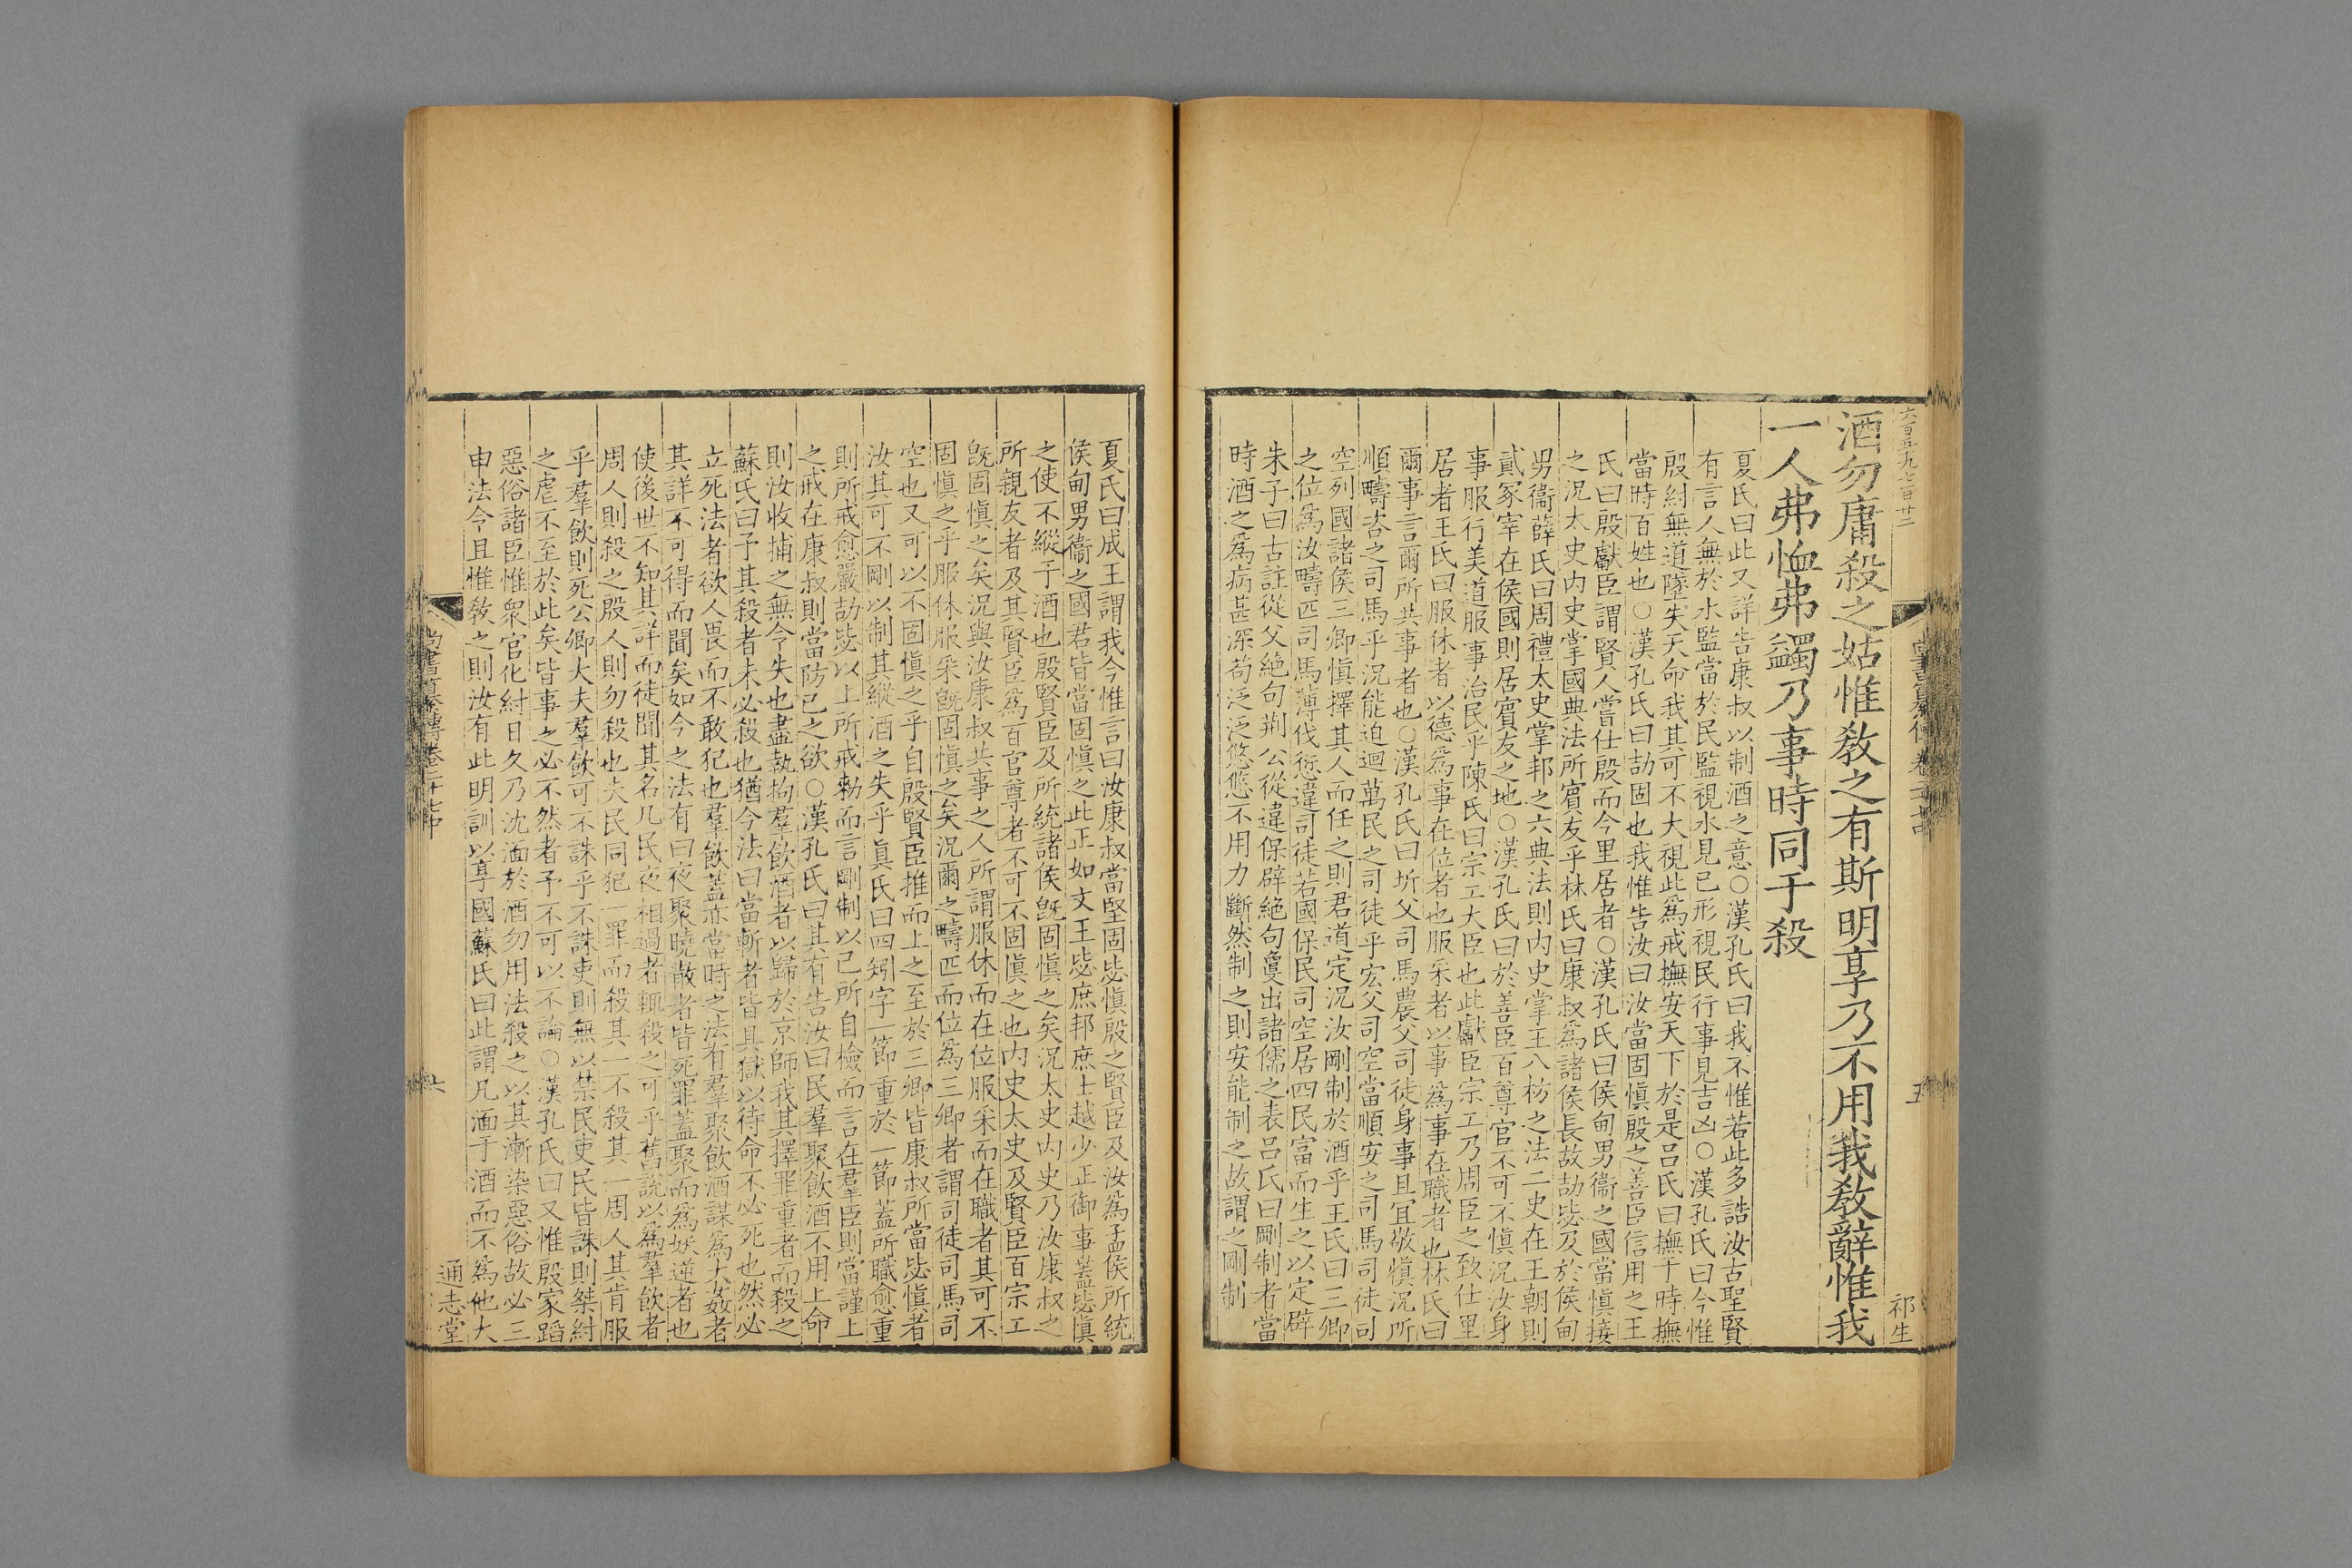 六百五九七百廿二
祁生
酒勿庸殺之姑惟敎之有斯明享乃不用我敎辭惟我
一人弗恤弗蠲乃事時同于殺
夏氏曰此又詳告康叔以制酒之意○漢孔氏曰我不惟若此多誥汝古聖賢
有言人無於水監當於民監視水見己形視民行事見吉凶○漢孔氏曰今惟
殷紂無道墜失天命我其可不大視此爲戒撫安天下於是呂氏曰撫于時撫
當時百姓也○漢孔氏曰劼固也我惟告汝曰汝當固愼殷之善臣信用之王
氏曰殷獻臣謂賢人嘗仕殷而今里居者○漢孔氏曰侯甸男衞之國當愼接
之況太史内史掌國典法所賓友乎林氏曰康叔爲諸侯長故劼毖及於侯甸
男衞薛氏曰周禮太史掌邦之六典法則内史掌王八枋之法二史在王朝則
貳冢宰在侯國則居賓友之地○漢孔氏曰於善臣百尊官不可不愼況汝身
事服行美道服事治民乎陳氏曰宗工大臣也此獻臣宗工乃周臣之致仕里
居者王氏曰服休者以德爲事在位者也服采者以事爲事在職者也林氏曰
爾事言爾所共事者也○漢孔氏曰圻父司馬農父司徒身事且宜敬愼況所
順疇咨之司馬乎況能迫迴萬民之司徒乎宏父司空當順安之司馬司徒司
空列國諸侯三卿愼擇其人而任之則君道定況汝剛制於酒乎王氏曰三卿
之位爲汝疇匹司馬薄伐愆違司徒若國保民司空居四民富而生之以定辟
朱子曰古註從父絶句荆公從違保辟絶句敻出諸儒之表呂氏曰剛制者當
時酒之爲病甚深苟泛泛悠悠不用力斷然制之則安能制之故謂之剛制
夏氏曰成王謂我今惟言曰汝康叔當堅固毖愼殷之賢臣及汝爲孟侯所統
侯甸男衞之國君皆當固愼之此正如文王毖庶邦庶士越少正御事蓋毖愼
之使不縱于酒也殷賢臣及所統諸侯旣固愼之矣況太史内史乃汝康叔之
所親友者及其賢臣爲百官尊者不可不固愼之也内史太史及賢臣百宗工
旣固愼之矣況與汝康叔共事之人所謂服休而在位服采而在職者其可不
固愼之乎服休服采旣固愼之矣況爾之疇匹而位爲三卿者謂司徒司馬司
空也又可以不固愼之乎自殷賢臣推而上之至於三卿皆康叔所當毖愼者
汝其可不剛以制其縱酒之失乎眞氏曰四矧字一節重於一節蓋所職愈重
則所戒愈嚴劼毖以上所戒勑而言剛制以己所自檢而言在羣臣則當謹上
之戒在康叔則當防己之欲○漢孔氏曰其有告汝曰民羣聚飲酒不用上命
則汝收捕之無令失也盡執拘羣飲酒者以歸於京師我其擇罪重者而殺之
蘇氏曰予其殺者未必殺也猶今法曰當斬者皆具獄以待命不必死也然必
立死法者欲人畏而不敢犯也羣飲蓋亦當時之法有羣聚飲酒謀爲大姦者
其詳不可得而聞矣如今之法有曰夜聚曉散者皆死罪蓋聚而爲妖逆者也
使後世不知其詳而徒聞其名凡民夜相過者輒殺之可乎舊說以爲羣飲者
周人則殺之殷人則勿殺也夫民同犯一罪而殺其一不殺其一周人其肯服
乎羣飲則死公卿大夫羣飲可不誅乎不誅吏則無以禁民吏民皆誅則桀紂
之虐不至於此矣皆事之必不然者予不可以不論○漢孔氏曰又惟殷家蹈
惡俗諸臣惟衆官化紂日久乃沈湎於酒勿用法殺之以其漸染惡俗故必三
申法令且惟敎之則汝有此明訓以享國蘇氏曰此謂凡湎于酒而不爲他大
尚書纂傳卷二十七中
六
通志堂